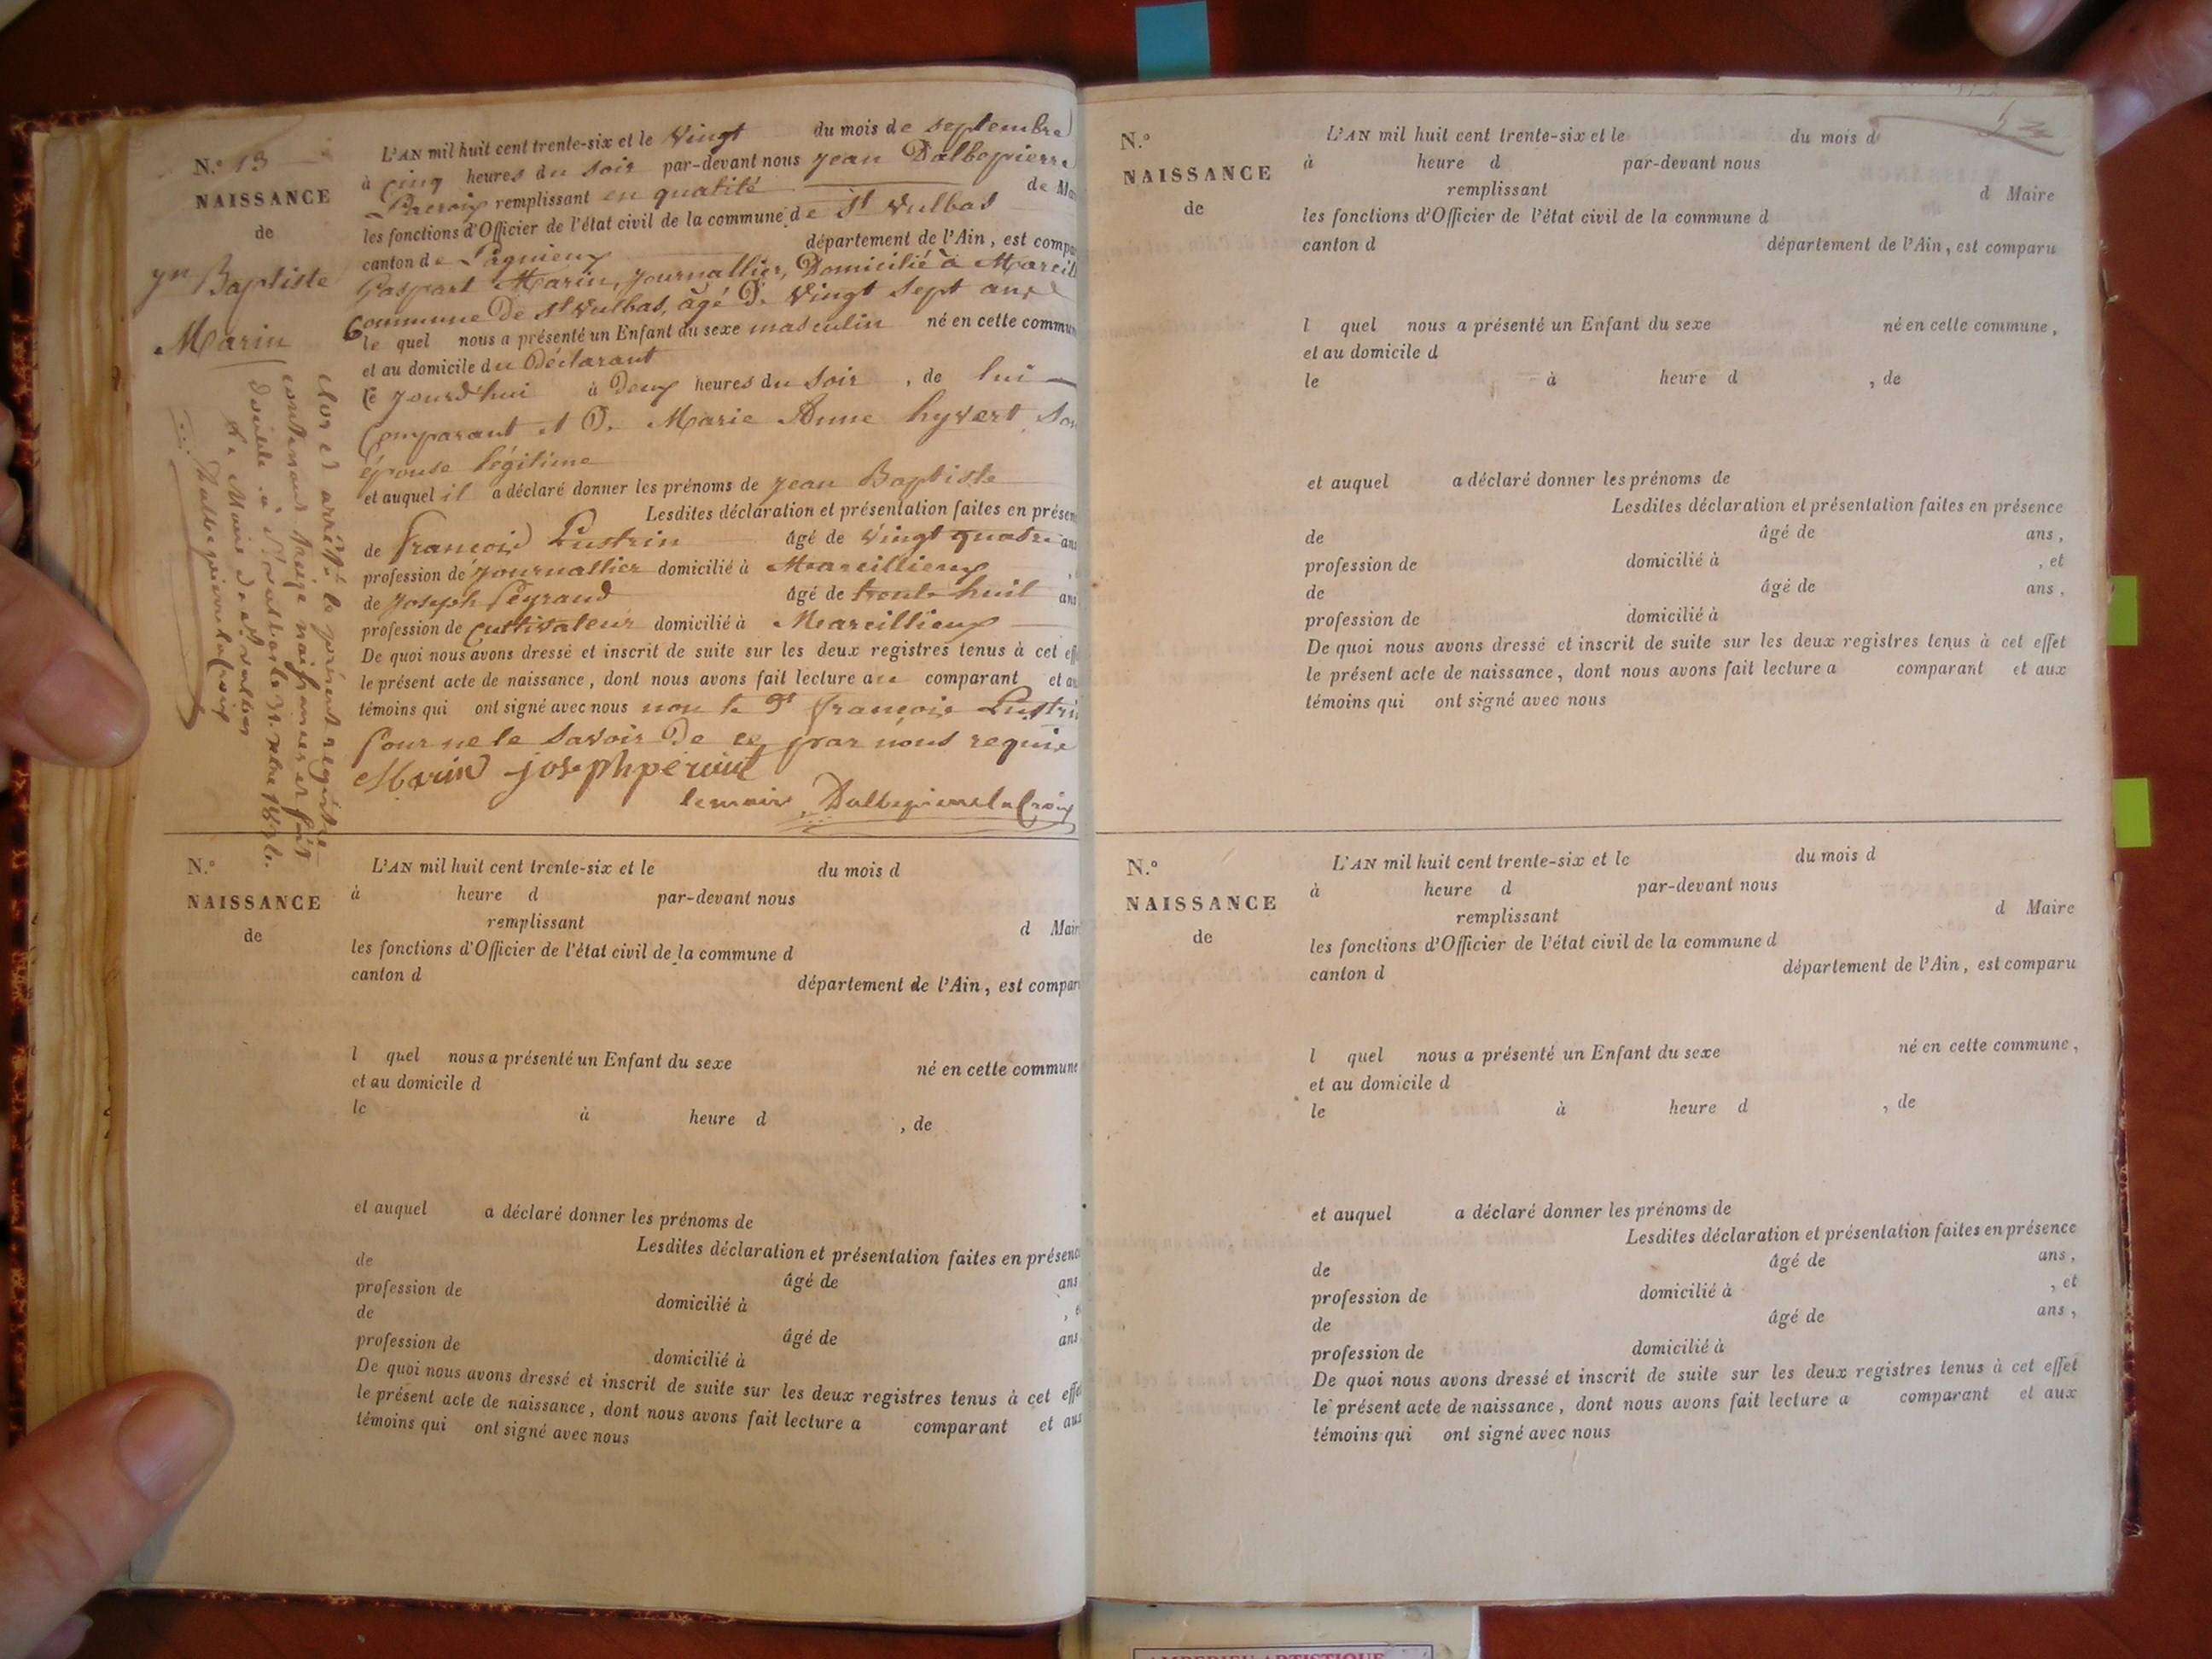 N.° 13
NAISSANCE
de
Jn Baptiste
Marin
L'AN mil huit cent trente-six et le Vingt du mois de septembre
à Cinq heures du soir par-devant nous jean Dalbepierre
remplissant en qualité de Ma
les fonctions d'Officier de l'état civil de la commune de St Vulbas
canton de Lagnieux département de l'Ain, est compa
Gaspart Marin, journallier, Domicilié à Marcill
Commune de St Vulbas, âgé De Vingt Sept ans
le quel nous a présenté un Enfant du sexe masculin né en cette commun
et au domicile du Déclarant
Ce jourd'hui à Deux heures du Soir , de lui
Comparant et De Marie Anne hyvert Son
épouse légitime
et auquel il a déclaré donner les prénoms de jean Baptiste
Lesdites déclaration et présentation faites en présen
de françois Lustrin âgé de Vingt quatre ans
profession de journallier domicilié à Marcillieux
de joseph Peyraud âgé de trente huit ans
profession de Cultivateur domicilié à Marcillieux
De quoi nous avons dressé et inscrit de suite sur les deux registres tenus à cet effe
le présent acte de naissance, dont nous avons fait lecture au comparant et au
témoins qui ont signé avec nous non le Dt françois Lustri
Pour ne le Savoir De ce par nous requis
Marin joseph
le maire Dalbepierre la Croix
Clos et arrêté le présent registre
contenant treize naissances et fait
Double à St vulbas le 31
Le Maire de St vulbas
Dalbepierre la Croix
N.°
NAISSANCE
de
L'AN mil huit cent trente-six et le du mois d
à heure d par-devant nous
remplissant d Mair
les fonctions d'Officier de l'état civil de la commune d
canton d département de l'Ain, est compar
l quel nous a présenté un Enfant du sexe né en cette commune
et au domicile d
le à heure d , de
et auquel a déclaré donner les prénoms de
Lesdites déclaration et présentation faites en présenc
de âgé de ans
profession de domicilié à , e
de âgé de ans
profession de domicilié à
De quoi nous avons dressé et inscrit de suite sur les deux registres tenus à cet effet
le présent acte de naissance, dont nous avons fait lecture a comparant et aux
témoins qui ont signé avec nous
N.°
NAISSANCE
de
L'AN mil huit cent trente-six et le du mois d
à heure d par-devant nous
remplissant d Maire
les fonctions d'Officier de l'état civil de la commune d
canton d département de l'Ain, est comparu
l quel nous a présenté un Enfant du sexe né en cette commune,
et au domicile d
le à heure d , de
et auquel a déclaré donner les prénoms de
Lesdites déclaration et présentation faites en présence
de âgé de ans,
profession de domicilié à , et
de âgé de ans,
profession de domicilié à
De quoi nous avons dressé et inscrit de suite sur les deux registres tenus à cet effet
le présent acte de naissance, dont nous avons fait lecture a comparant et aux
témoins qui ont signé avec nous
N.°
NAISSANCE
de
L'AN mil huit cent trente-six et le du mois d
à heure d par-devant nous
remplissant d Maire
les fonctions d'Officier de l'état civil de la commune d
canton d département de l'Ain, est comparu
l quel nous a présenté un Enfant du sexe né en cette commune,
et au domicile d
le à heure d , de
et auquel a déclaré donner les prénoms de
Lesdites déclaration et présentation faites en présence
de âgé de ans,
profession de domicilié à , et
de âgé de ans,
profession de domicilié à
De quoi nous avons dressé et inscrit de suite sur les deux registres tenus à cet effet
le présent acte de naissance, dont nous avons fait lecture a comparant et aux
témoins qui ont signé avec nous